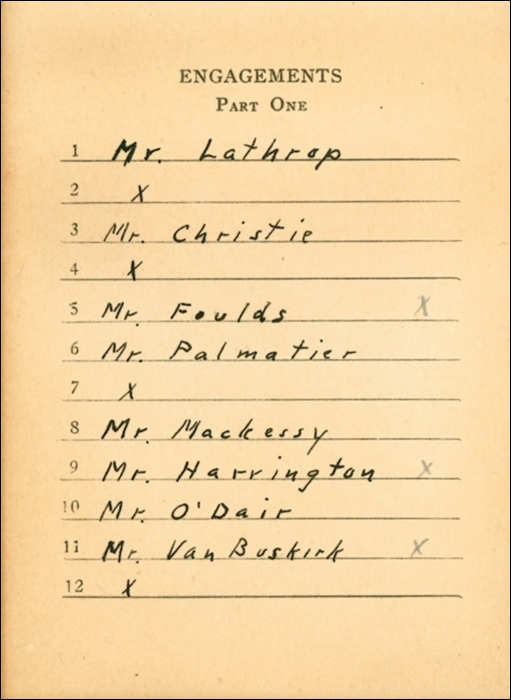 ENGAGEMENTS
PART ONE
1 Mr. Lathrop
2 X
3 Mr. Christie
4 X
5 Mr. Foulds X
6 Mr. Palmatier
7 X
8 Mr. Mackessy
9 Mr. Harrington X
10 Mr. O'Dair
11 Mr. Van Buskirk X
12 X